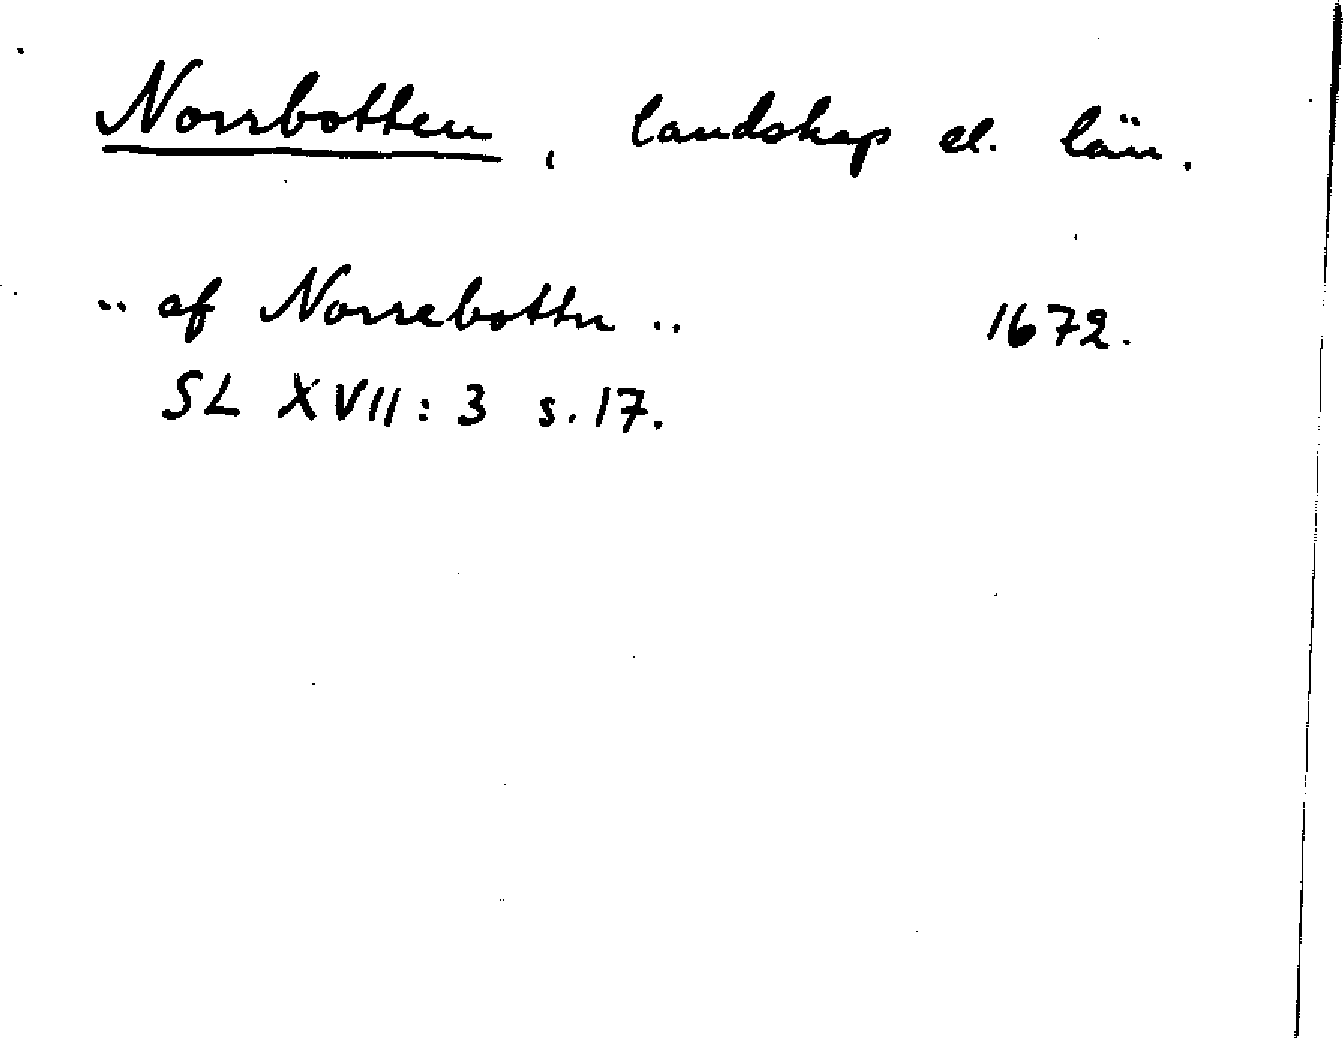 Norrbotten, landskap el. län.
.. af Norrebottn .. 1672.
SL XVII: 3 s. 17.